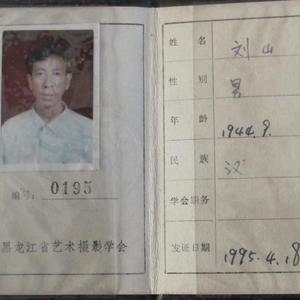 编号: 0195
黑龙江省艺术摄影学会
姓名 刘山
性别 男
年龄 1944.9.
民族 汉
学会职务
发证日期 1995.4.18